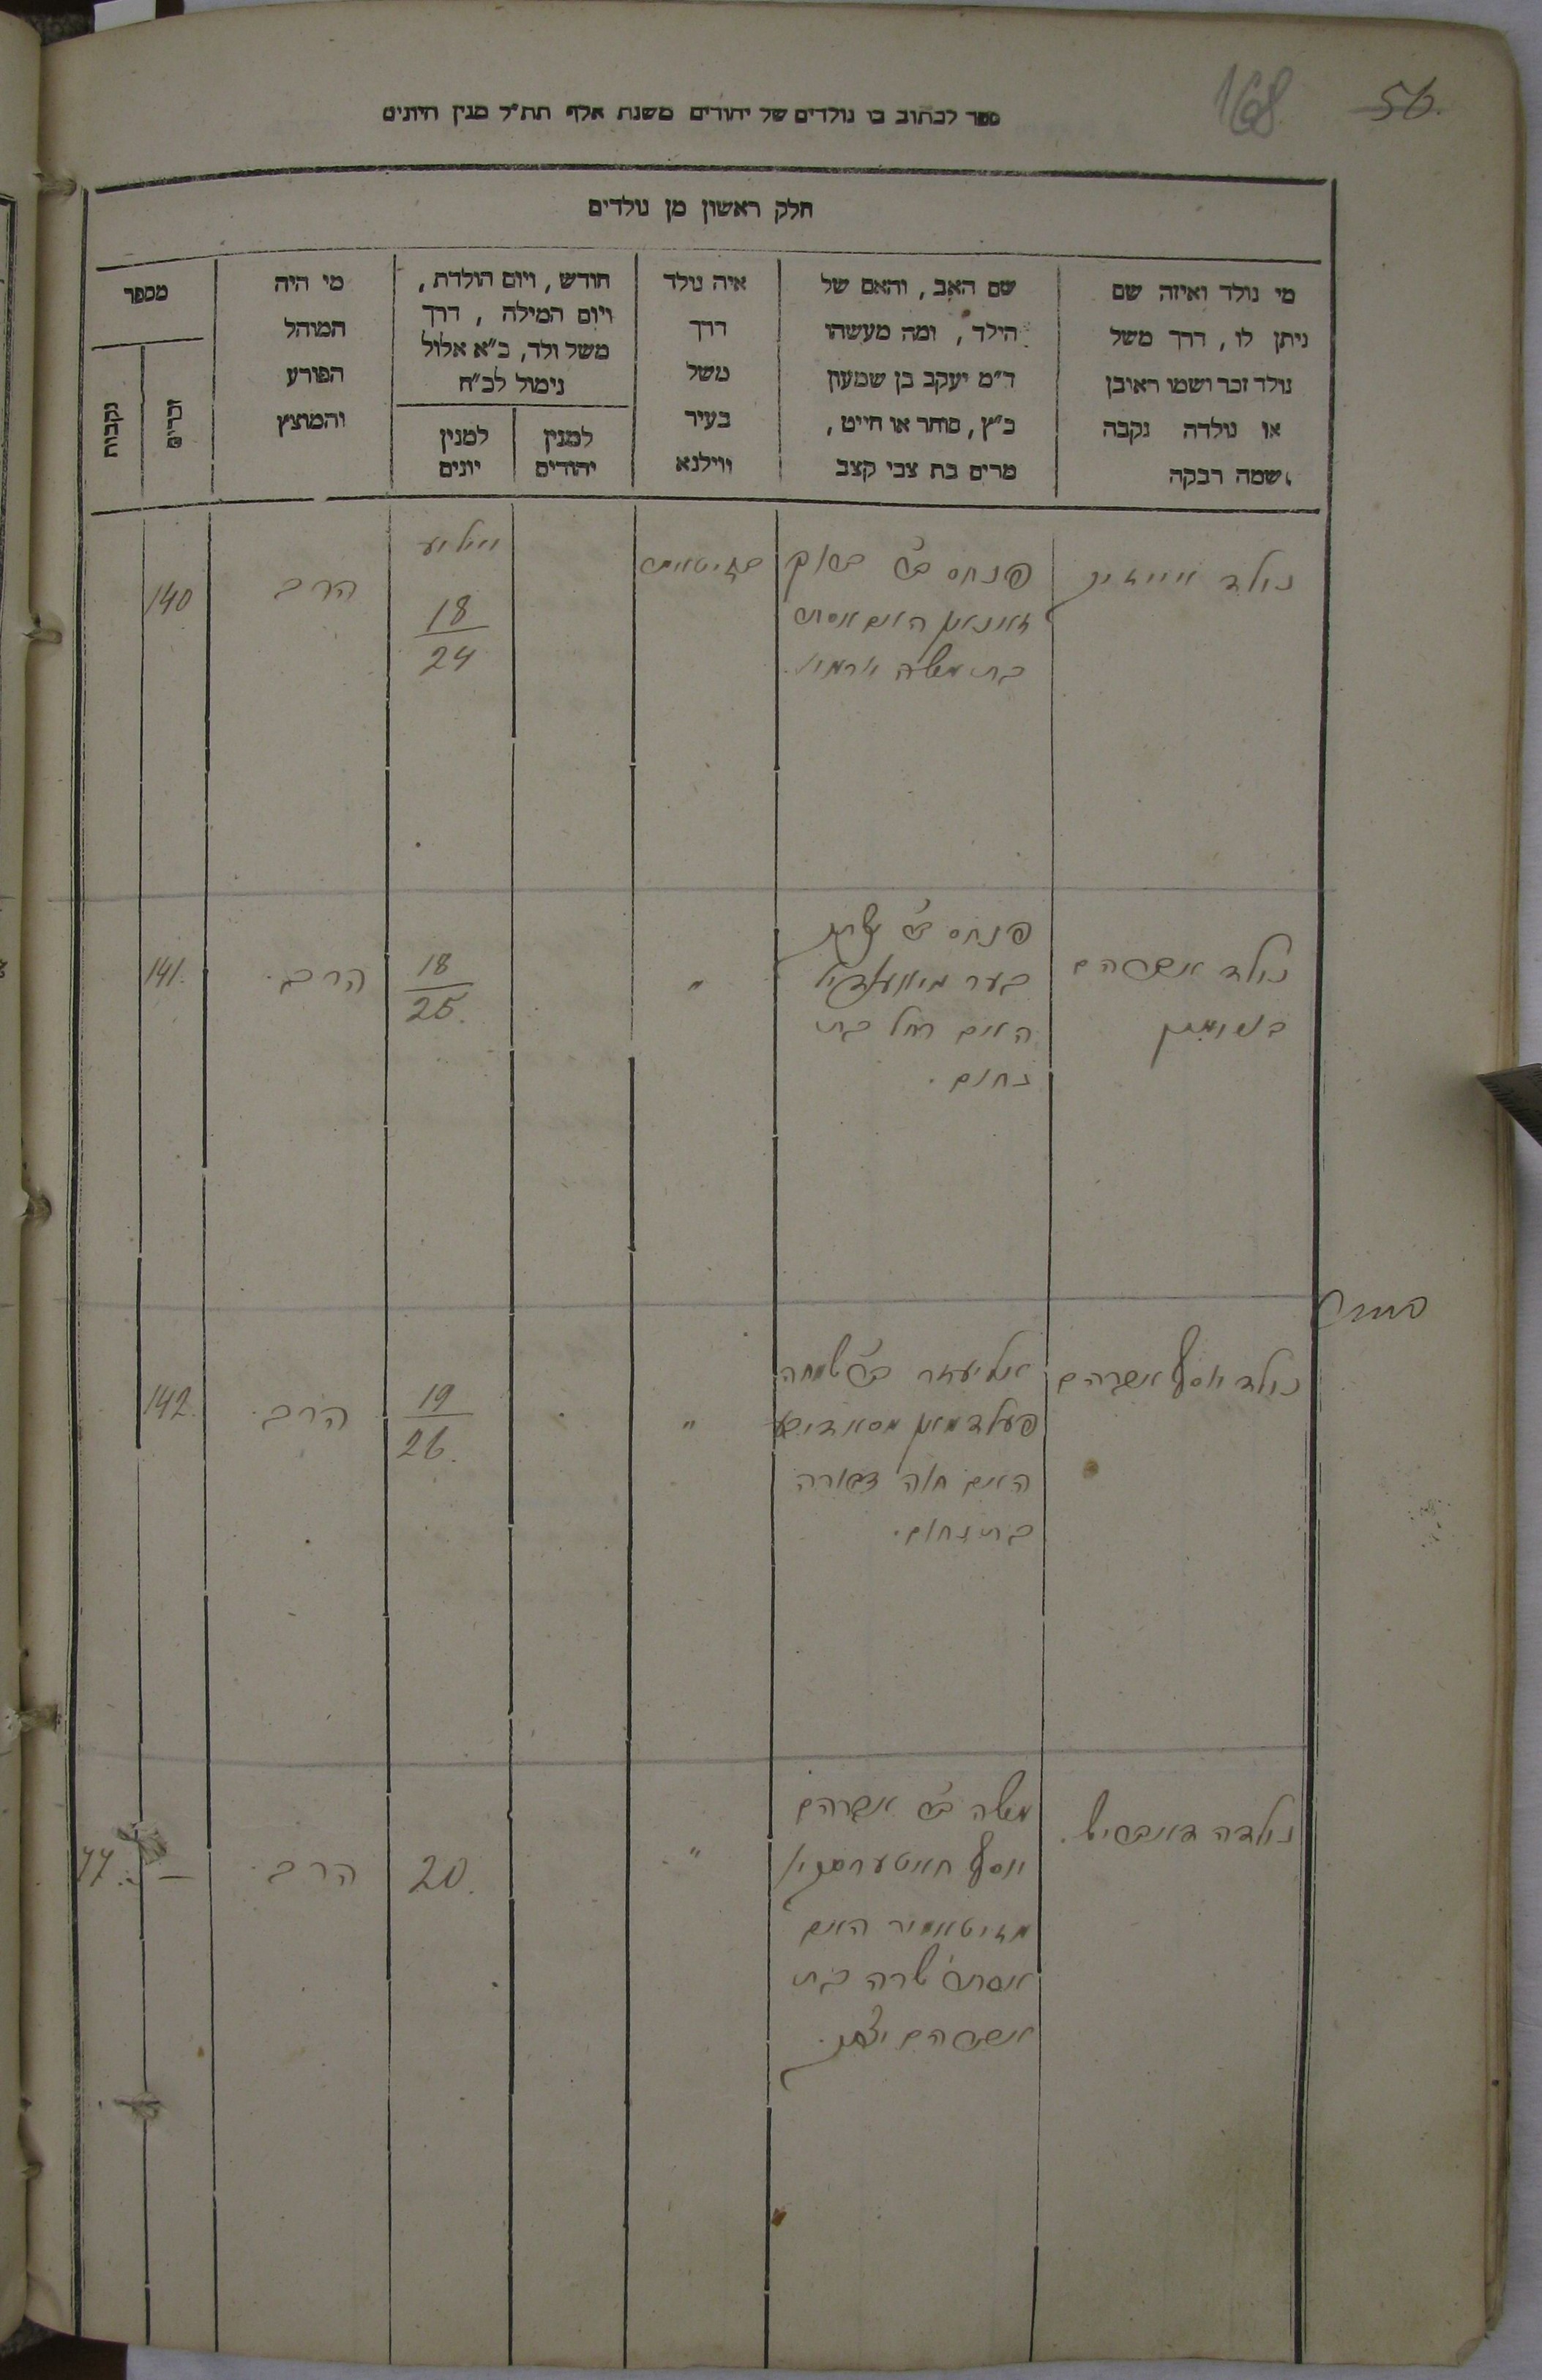 168
56.
ספר לכתוב בו נולדים של יהודים משנת אלף תת״ל מנין היונים
חלק ראשון מן נולדים
מי נולד ואיזה שם
ניתן לו, דרך משל
נולד זכר ושמו ראובן
או נולדה נקבה
ושמה רבקה
שם האב, והאם של
הילד, ומה מעשהו
ד״מ יעקב בן שמעון
כ״ץ, סוחר או חייט,
מרים בת צבי קצב
איה נולד
דרך
משל
בעיר
ווילנא
חודש, ויום הולדת,
ויום המילה, דרך
משל ולד, כ״א אלול
נימול לכ״ח
למנין
יהודים
למנין
יונים
מי היה
המוהל
הפורע
והמוצץ
מספר
זכרים
נקבות
נולד אייזיק
פנחס ב״ר
האם אסתר
בת משה
יוליע
18
24
הרב
140
נולד אברהם
פנחס ב״ר
בער
האם רחל בת
נחום.
"
18
25.
הרב.
141.
נולד יוסף אברהם
אליעזר ב״ר שמחה
פעלדמאן
האם חוה דבורה
בת נחום.
"
19
26.
הרב.
142.
נולדה
משה ב״ר אברהם
יוסף
מזיטאמיר האם
אסתר שרה בת
אברהם יצחק.
"
20.
הרב.
—
77.